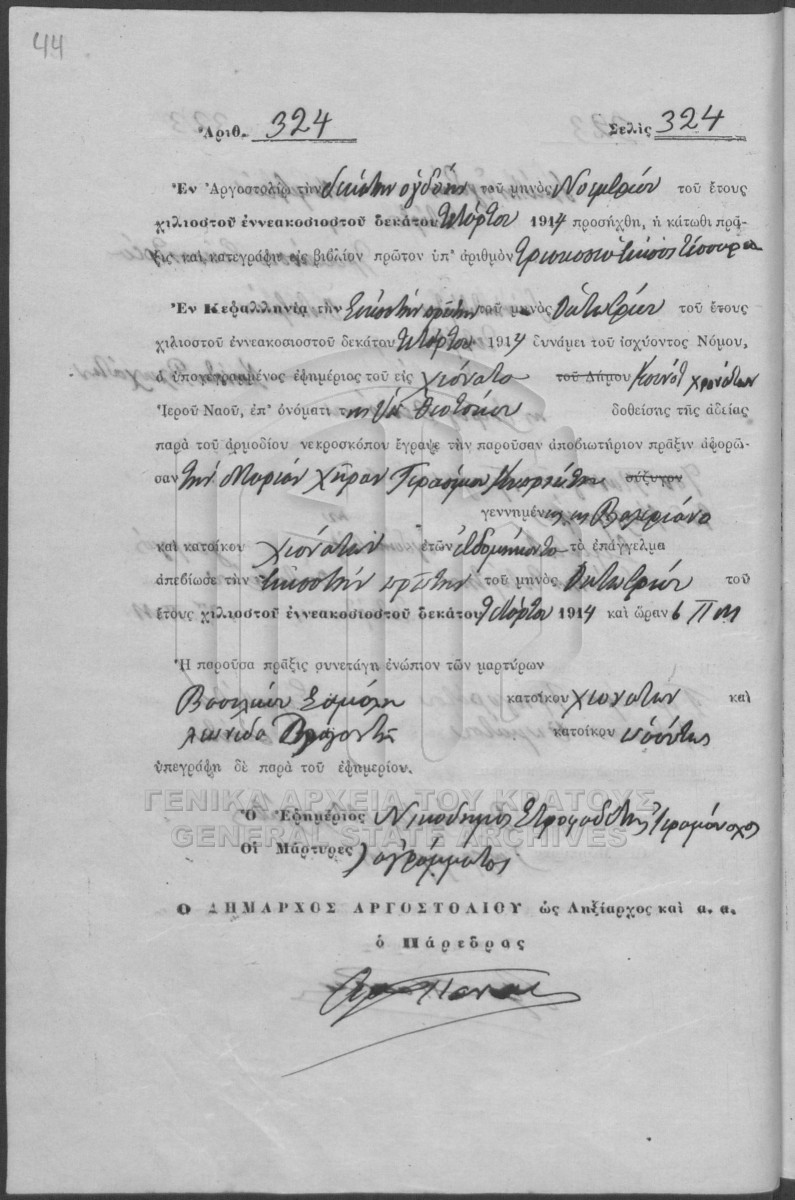 44
Ἀριθ. 324 Σελὶς 324
Ἐν Ἀργοστολίῳ τὴν δεκάτην ὀγδόην τοῦ μηνὸς Νοεμβρίου τοῦ ἔτους
χιλιοστοῦ ἐννεακοσιοστοῦ δεκάτου τετάρτου 1914 προσήχθη, ἡ κάτωθι πρᾶ-
ξις καὶ κατεγράφη εἰς βιβλίον πρῶτον ὑπ' ἀριθμὸν τριακόσια εἴκοσι τέσσαρα
Ἐν Κεφαλληνίᾳ τὴν εἰκοστὴν πρώτην τοῦ μηνὸς Ὀκτωβρίου τοῦ ἔτους
χιλιοστοῦ ἐννεακοσιοστοῦ δεκάτου τετάρτου 1914 δυνάμει τοῦ ἰσχύοντος Νόμου,
ὁ ὑπογεγραμμένος ἐφημέριος τοῦ εἰς Χιονάτα τοῦ Δήμου Κοινότ Χιονάτων
Ἱεροῦ Ναοῦ, ἐπ' ὀνόματι της Θεοτόκου δοθείσης τῆς ἀδείας
παρὰ τοῦ ἁρμοδίου νεκροσκόπου ἔγραψε τὴν παροῦσαν ἀποβιωτήριον πρᾶξιν ἀφορῶ-
σαν τὴν Μαρίαν χήραν Γερασίμου σύζυγον
γεννημένης εις Βαλεριάνο
καὶ κατοίκου Χιονάτων ἐτῶν ἑβδομήκοντα τὸ ἐπάγγελμα
ἀπεβίωσε τὴν εἰκοστὴν πρώτην τοῦ μηνὸς Ὀκτωβρίου τοῦ
ἔτους χιλιοστοῦ ἐννεακοσιοστοῦ δεκάτου τετάρτου 1914 καὶ ὥραν 6 Π Μ
Ἡ παροῦσα πρᾶξις συνετάγη ἐνώπιον τῶν μαρτύρων
Βασιλείου Σαμόλη κατοίκου Χιονάτων καὶ
Λεωνίδα κατοίκου
ὑπεγράφη δὲ παρὰ τοῦ ἐφημερίου.
ΓΕΝΙΚΑ ΑΡΧΕΙΑ ΤΟΥ ΚΡΑΤΟΥΣ
Ὁ Ἐφημέριος Νικόδημος Στροφαδίτης Ἱερομόναχος
GENERAL STATE ARCHIVES
Οἱ Μάρτυρες ) ἀγράμματοι
Ο ΔΗΜΑΡΧΟΣ ΑΡΓΟΣΤΟΛΙΟΥ ὡς Ληξίαρχος καὶ α. α.
ὁ Πάρεδρας